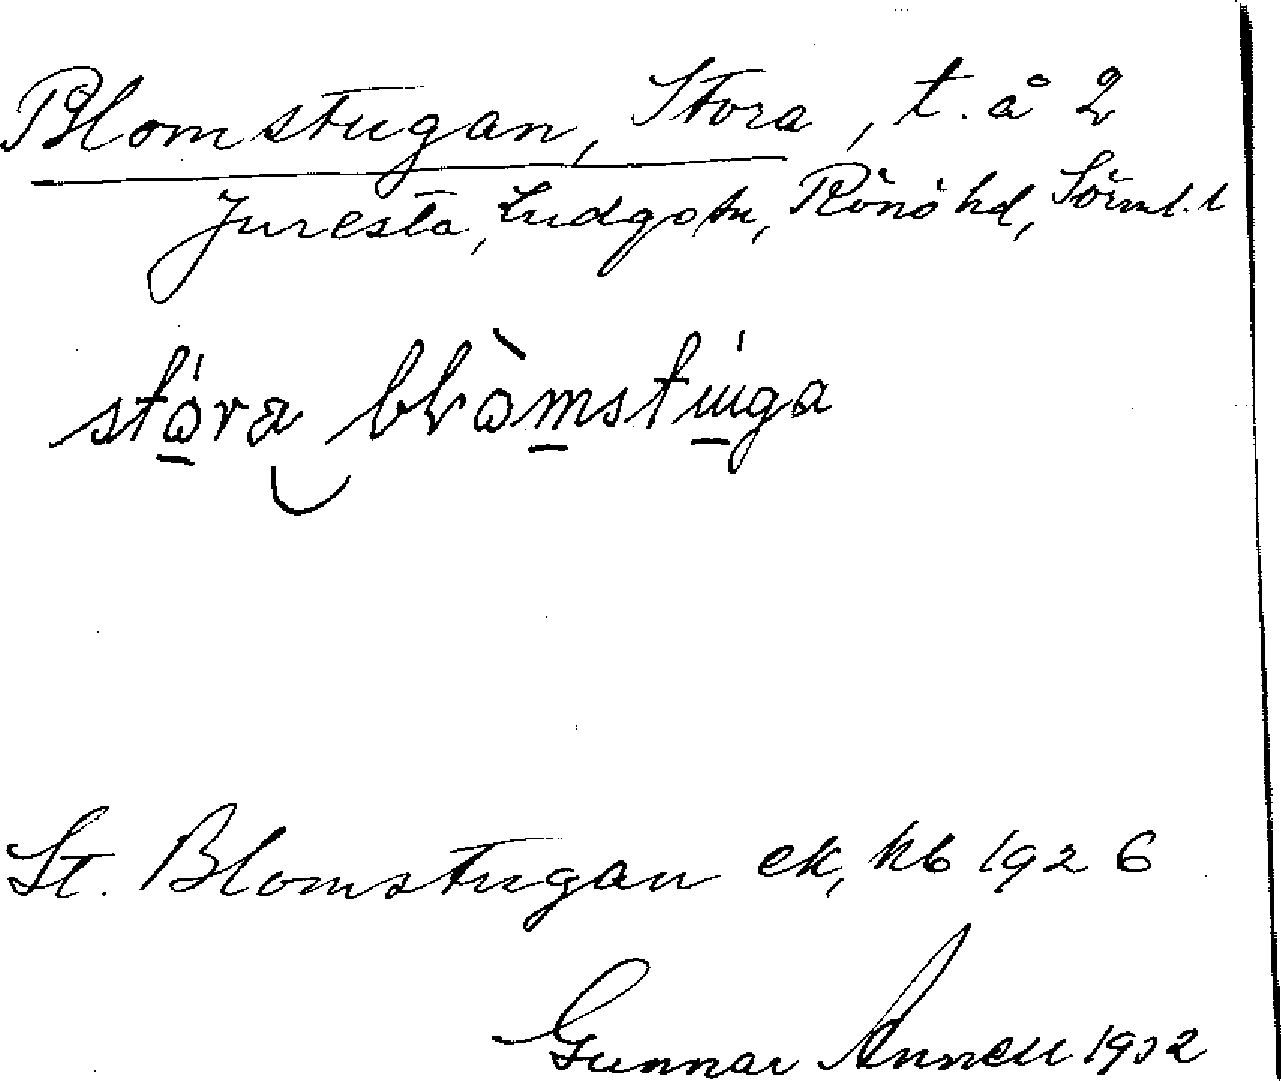 Blomstugan, Stora, t. å 2
Juresta, Ludgo sn, Rönö hd, Sörml. l
stora blomstuga
St. Blomstugan ek, kb 1926
Gunnar Annell 1932